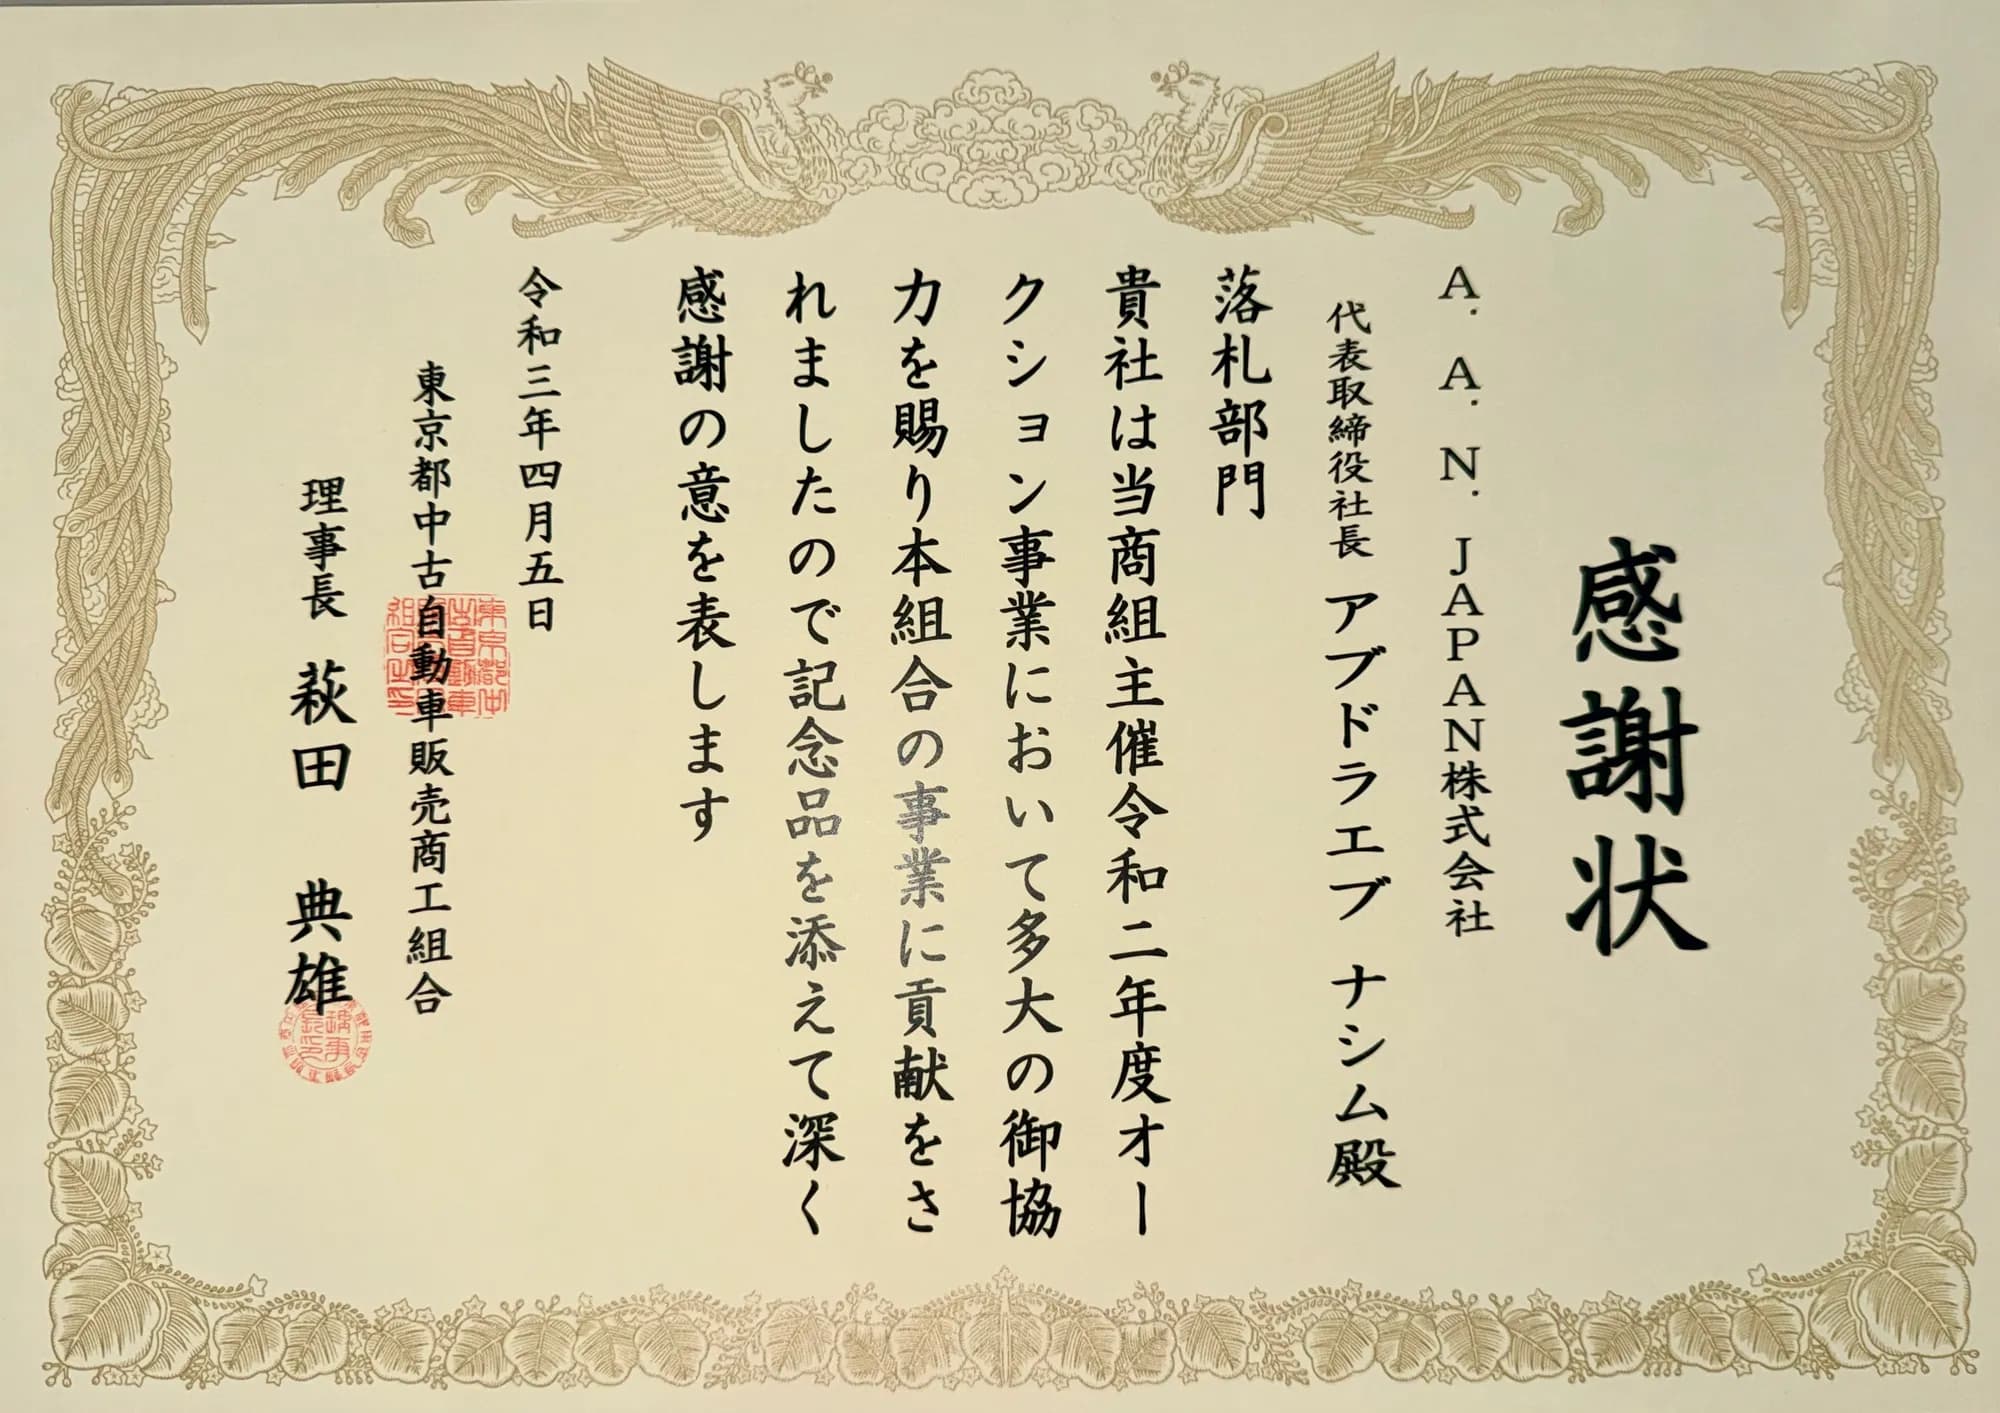 感謝状
A.A.N.JAPAN株式会社
代表取締役社長 アブドラエブ ナシム殿
落札部門
貴社は当商組主催令和二年度オー
クション事業において多大の御協
力を賜り本組合の事業に貢献をさ
れましたので記念品を添えて深く
感謝の意を表します
令和三年四月五日
東京都中古自動車販売商工組合
理事長 萩田 典雄